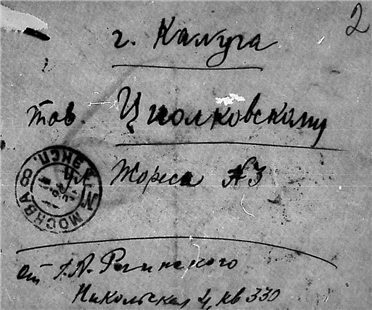 2
г. Калуга
тов. Циолковскому
Жореса №3
МОСКВА 8 ЭКСП.
от
Никольская 4, кв 330